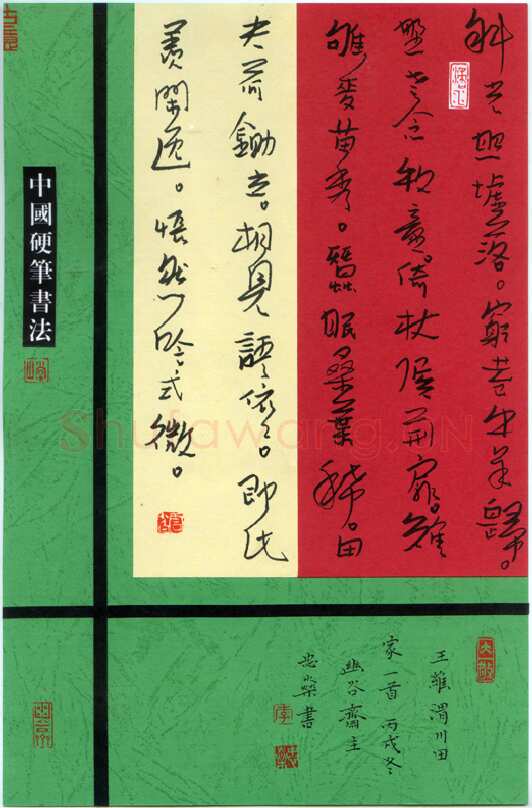 斜光照墟落。窮巷牛羊歸。
野老念牧童。倚杖候荊扉。雉
雊麥苗秀。蠶眠桑葉稀。田
夫荷鋤立。相見語依々。即此
羨閒逸。悵然吟式微。
王維渭川田
家一首 丙戌冬
幽谷齋主
忠榮書
中國硬筆書法
Shufawang.CN